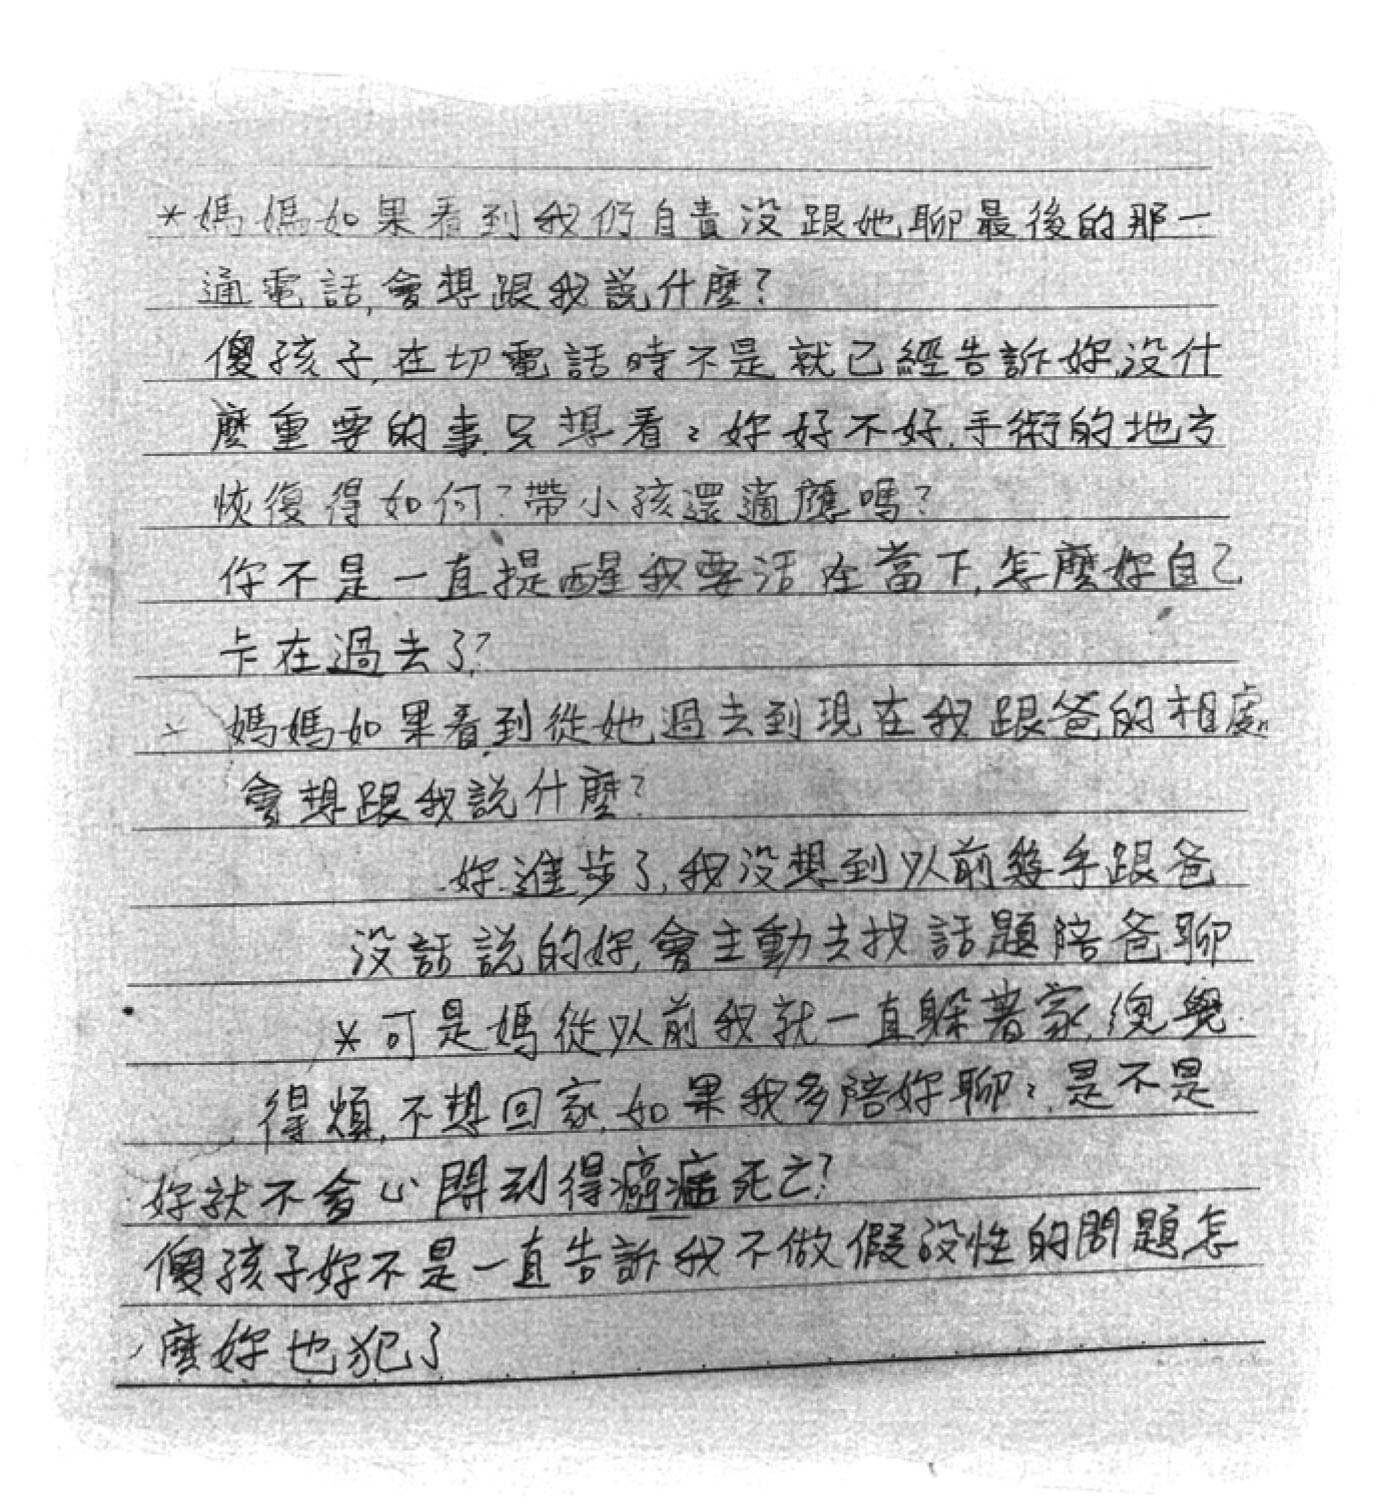 *媽媽如果看到我仍自責沒跟她聊最後的那一
通電話,會想跟我說什麼?
傻孩子,在切電話時不是就已經告訴妳,沒什
麼重要的事,只想看ㄑ妳好不好,手術的地方
恢復得如何?帶小孩還適應嗎?
你不是一直提醒我要活在當下,怎麼妳自己
卡在過去了?
* 媽媽如果看到從她過去到現在我跟爸的相處,
會想跟我說什麼?
妳進步了,我沒想到以前幾乎跟爸
沒話說的妳,會主動去找話題陪爸聊
*可是媽從以前我就一直躲著家,總覺
得煩,不想回家,如果我多陪妳聊ㄑ,是不是
妳就不會心悶到得癌症死亡?
傻孩子妳不是一直告訴我不做假設性的問題怎
麼妳也犯了